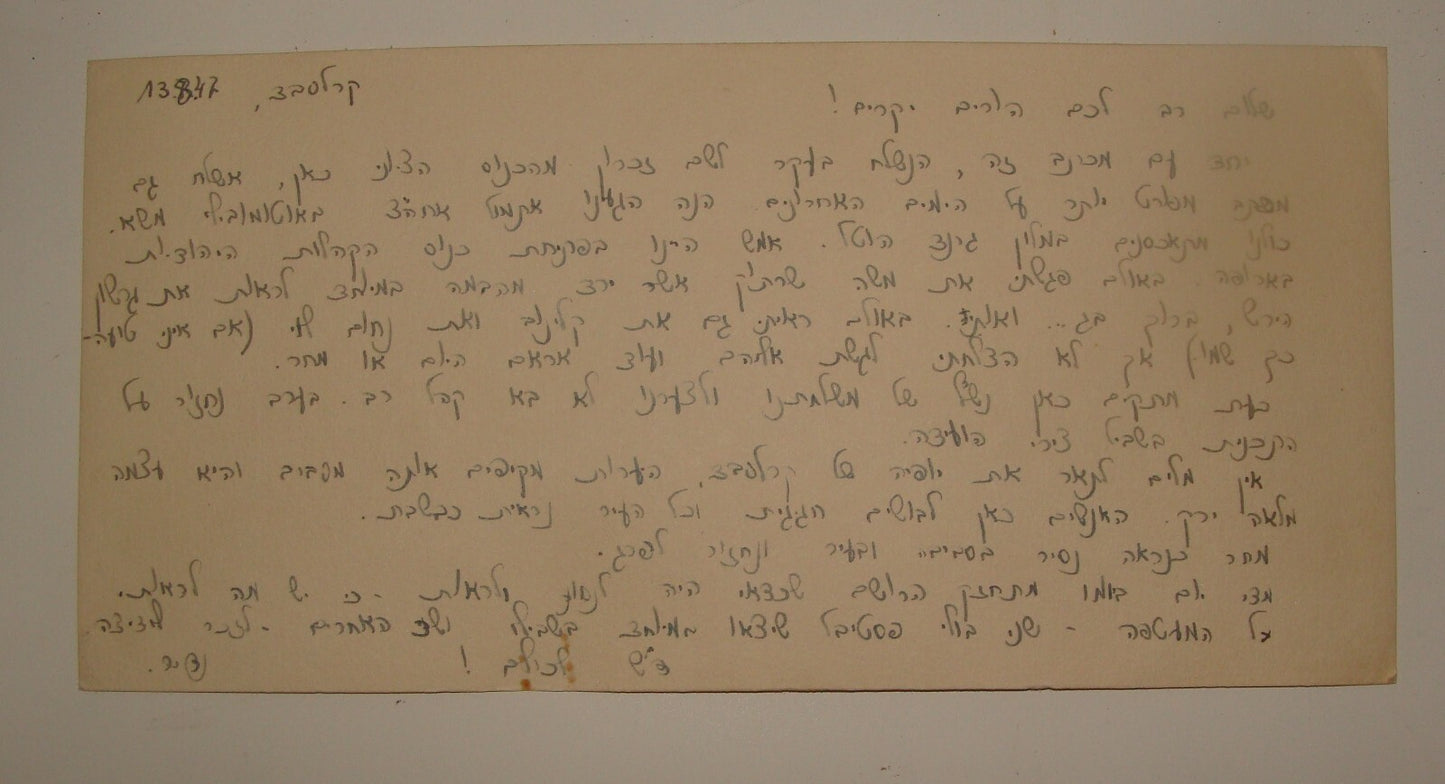 קרלסבד, 13.8.47
שלום רב לכם הורים יקרים!
יחד עם מכתב זה, הנשלח בעקר לשם זכרון מהכנוס הציוני כאן, אשלח גם
מכתב מפורט יותר על הימים האחרונים. הנה הגענו אתמול אחה"צ באוטומוביל משא.
כולנו מתאכסנים במלון גרנד הוטל. אמש היינו בפתיחת כנוס הקהלות היהודיות
באירופה. באולם פגשתי את משה שרתוק אשר ירד מהבמה במיוחד לראות את גרשון
הירש, ברוך בג... ואותי. באולם ראיתי גם את קלינוב ואת נחום לוי (אם אינני טועה -
כך שמו) אך לא הצלחתי לגשת אליהם ועוד אראם היום או מחר.
כעת מתקים כאן נשף של משלחתנו ולצערנו לא בא קהל רב. בערב נחזור על
התכנית בשביל צירי הועידה.
אין מלים לתאר את יופיה של קרלסבד, היערות מקיפים אותה מסביב והיא עצמה
מלאה ירק. האנשים כאן לבושים חגיגית וכל העיר נראית כבשבת.
מחר כנראה נסיר בסביבה ובעיר ונחזור לפרג.
מדי יום ביומו מתחזק הרושם שכדאי היה לנסוע ולראות - כי יש מה לראות.
על המעטפה - שני בולי פסטיבל שיצאו במיוחד בשבילו ושני האחרים - לזכר לידיצה
ד"ש לכולם! נדיר.